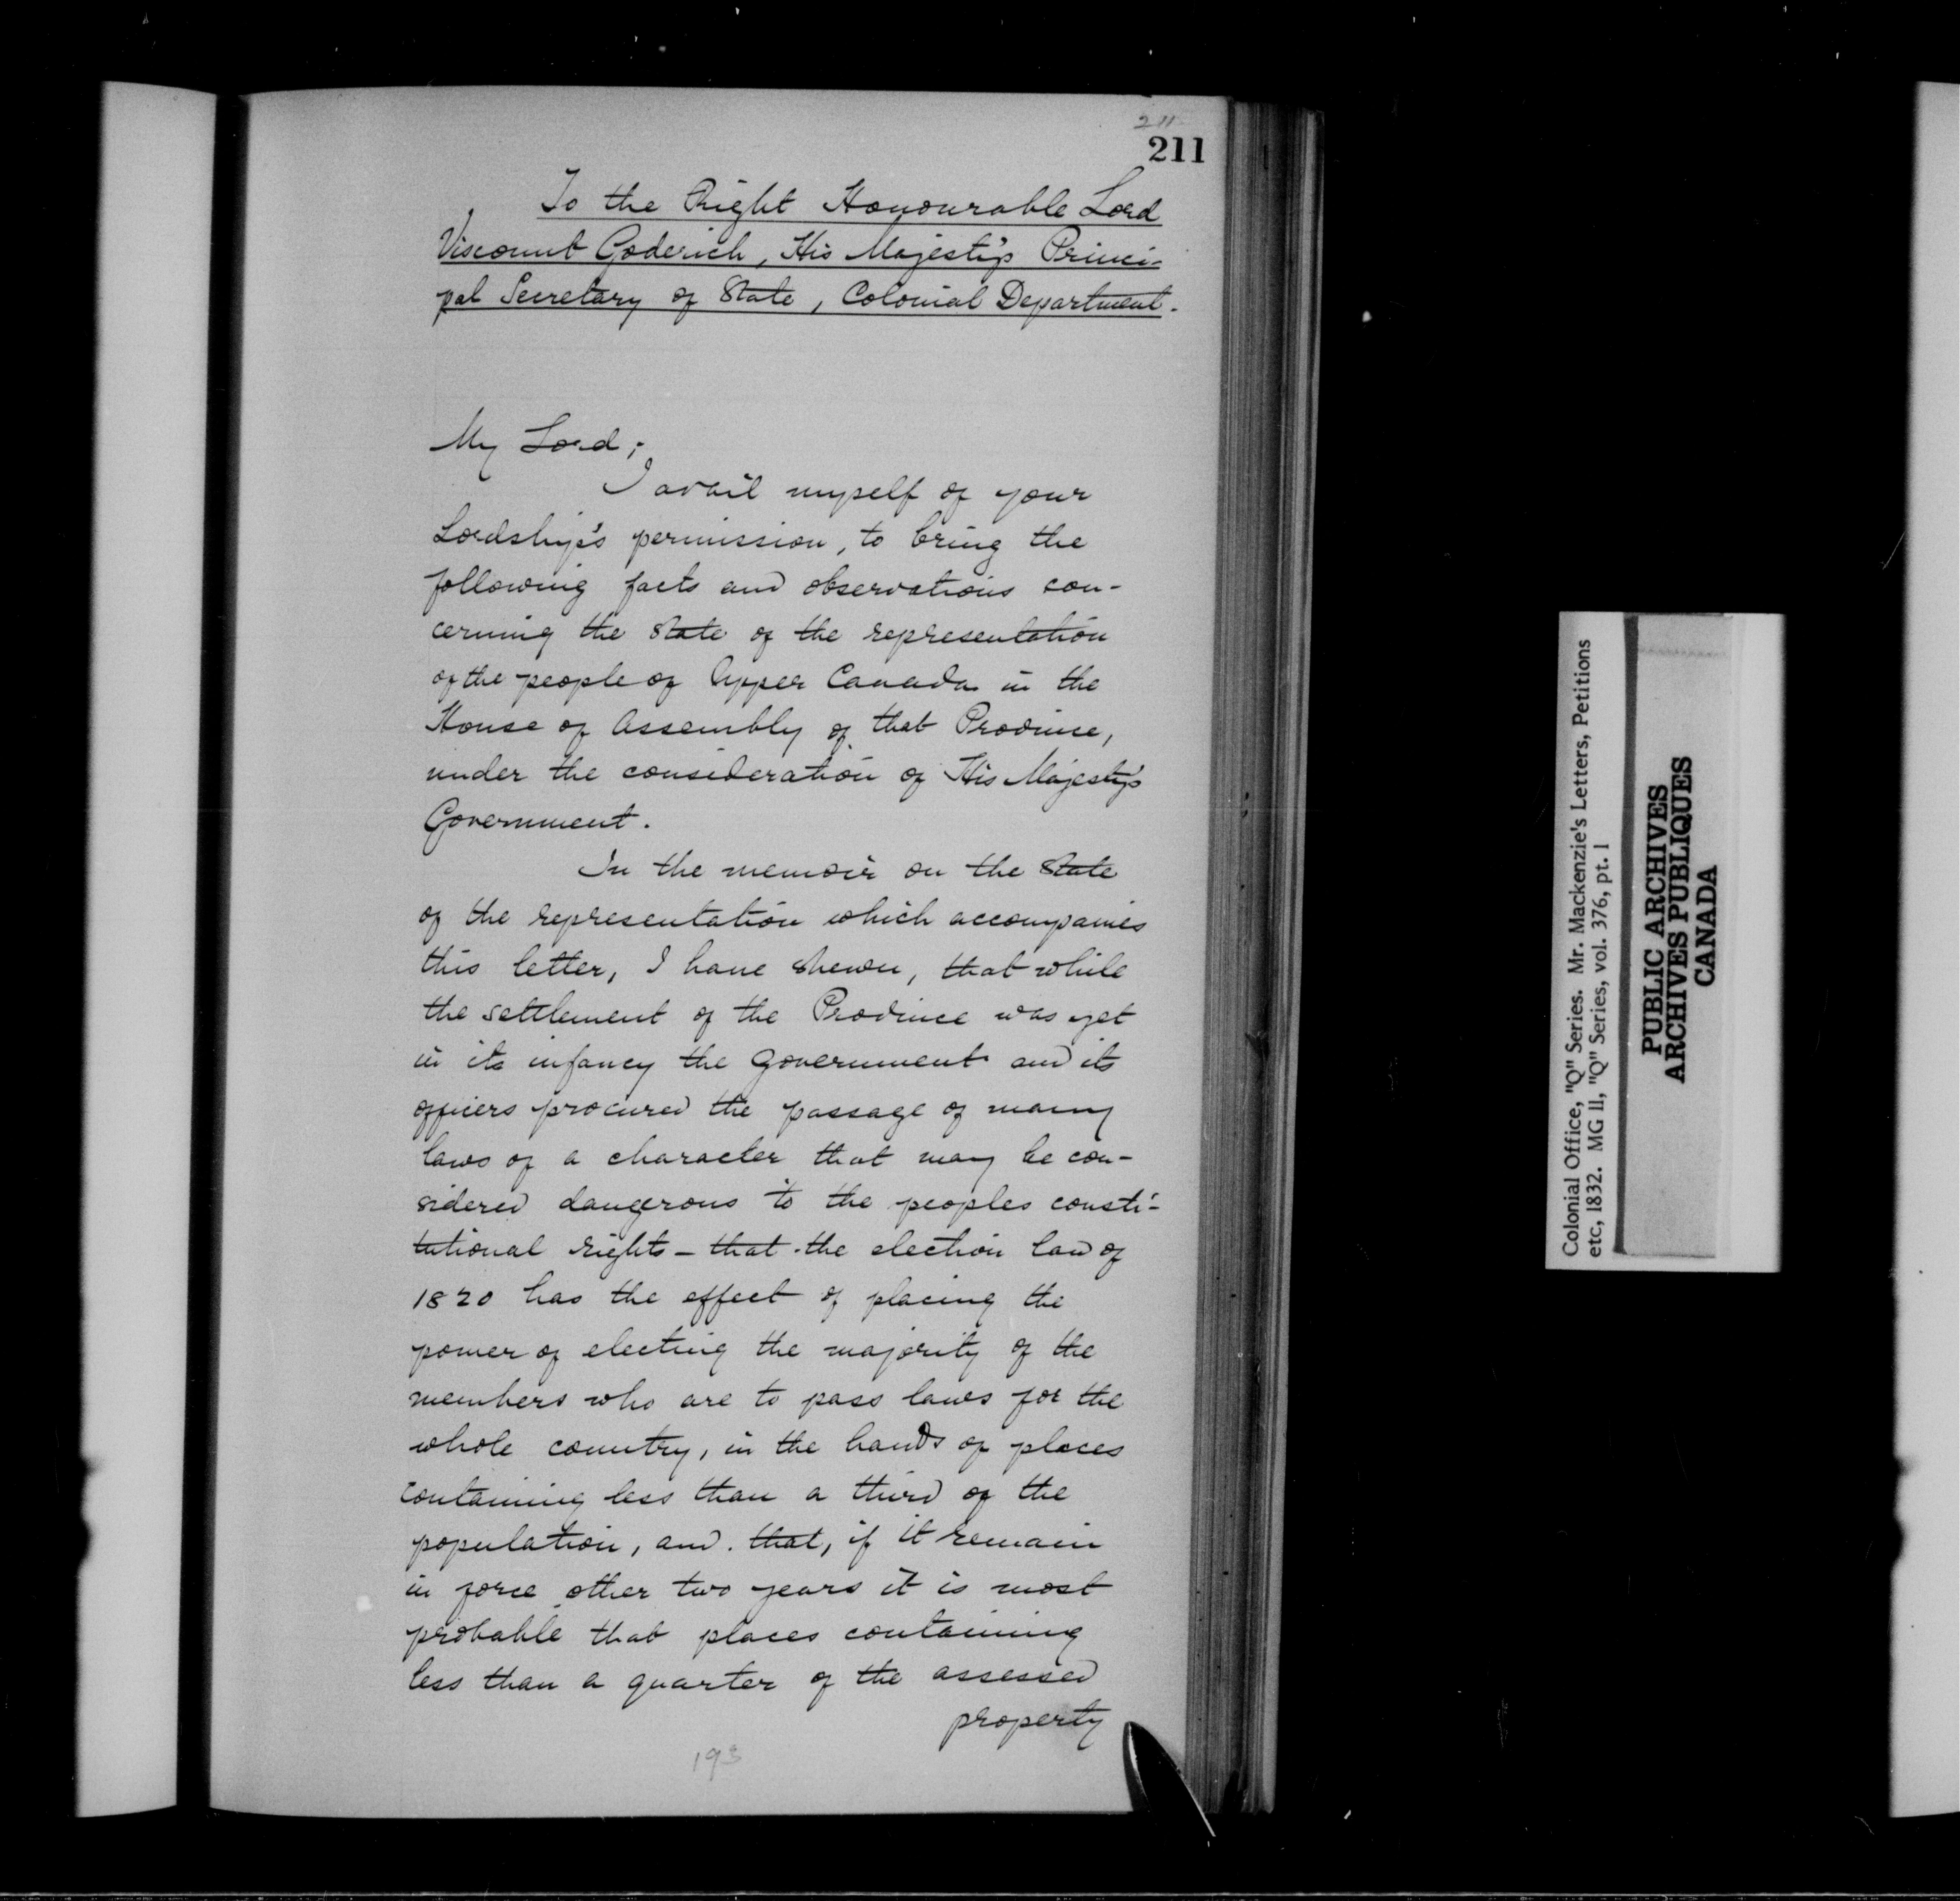 211
211
To the Right Honourable Lord
Viscount Goderich, His Majesty's Princi-
pal Secretary of State, Colonial Department.
My Lord;
I avail myself of your
Lordship's permission, to bring the
following facts and observations con-
cerning the state of the representation
of the people of Upper Canada in the
House of Assembly of that Province,
under the consideration of His Majesty's
Government.
In the memoir on the State
of the representation which accompanies
this letter, I have shewn, that while
the settlement of the Province was yet
in its infancy the Government and its
officers procured the passage of many
laws of a character that may be con-
sidered dangerous to the peoples consti-
tutional rights - that the election law of
1820 has the effect of placing the
power of electing the majority of the
members who are to pass laws for the
whole country, in the hands of places
containing less than a third of the
population, and that, if it remain
in force other two years it is most
probable that places containing
less than a quarter of the assessed
property
193
Colonial Office, "Q" Series. Mr. Mackenzie's Letters, Petitions
etc, 1832. MG 11, "Q" Series, vol. 376, pt. 1
PUBLIC ARCHIVES
ARCHIVES PUBLIQUES
CANADA